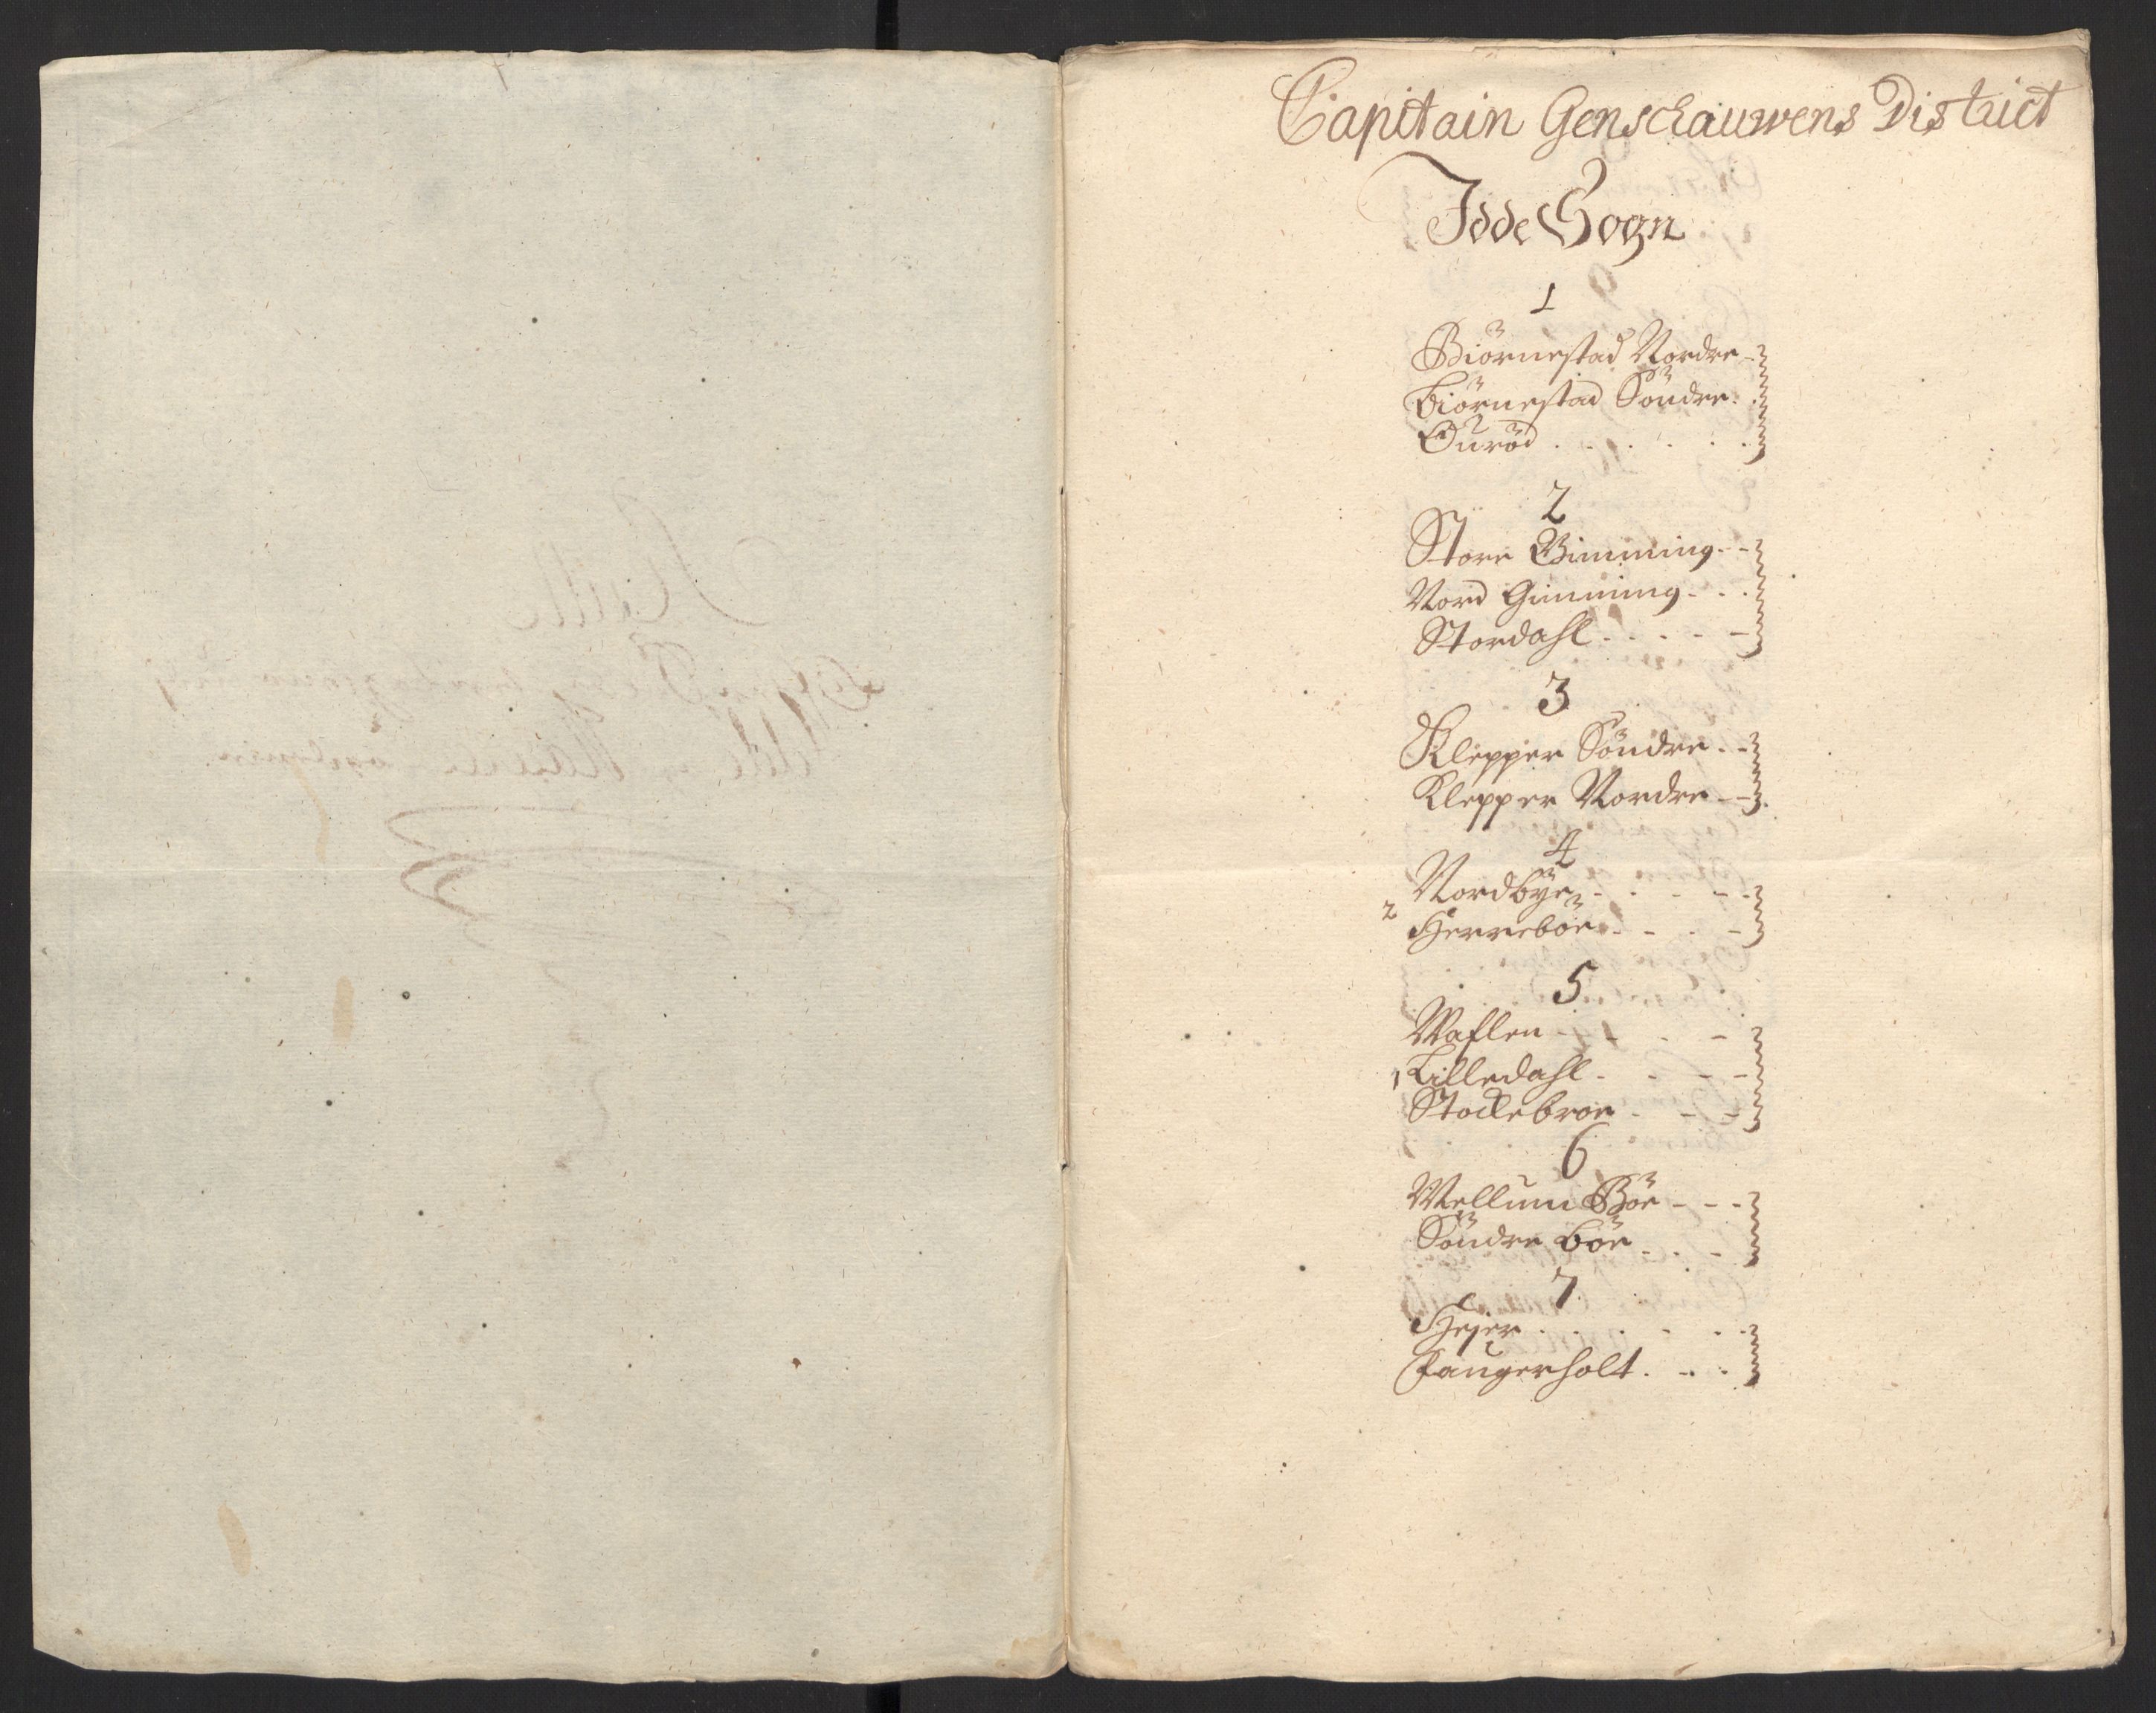 Capitain Genschauwens District
Idde Sogn
1
Biörnestad Nordre
Biörnestad Söndre
Ouröd
2
Store Gimming
Nord Gimming
Stordahl
3
Klepper Söndre
Klepper Nordre
4
Nordbÿe
2 Herreböe
5
Waflen
1 Lilledahl
Stockebroe
6
Mellum Böe
Söndre Böe
7
Hejer
Fangerholt